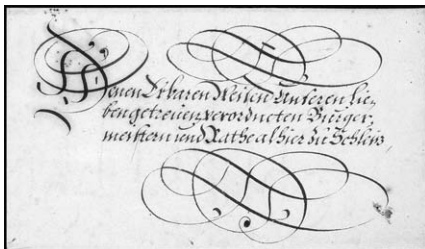 Denen Erbaren Weisen Unseren lie=
ben getreuen verordneten Bürger=
meistern und Rathe alhier zu Schleis,